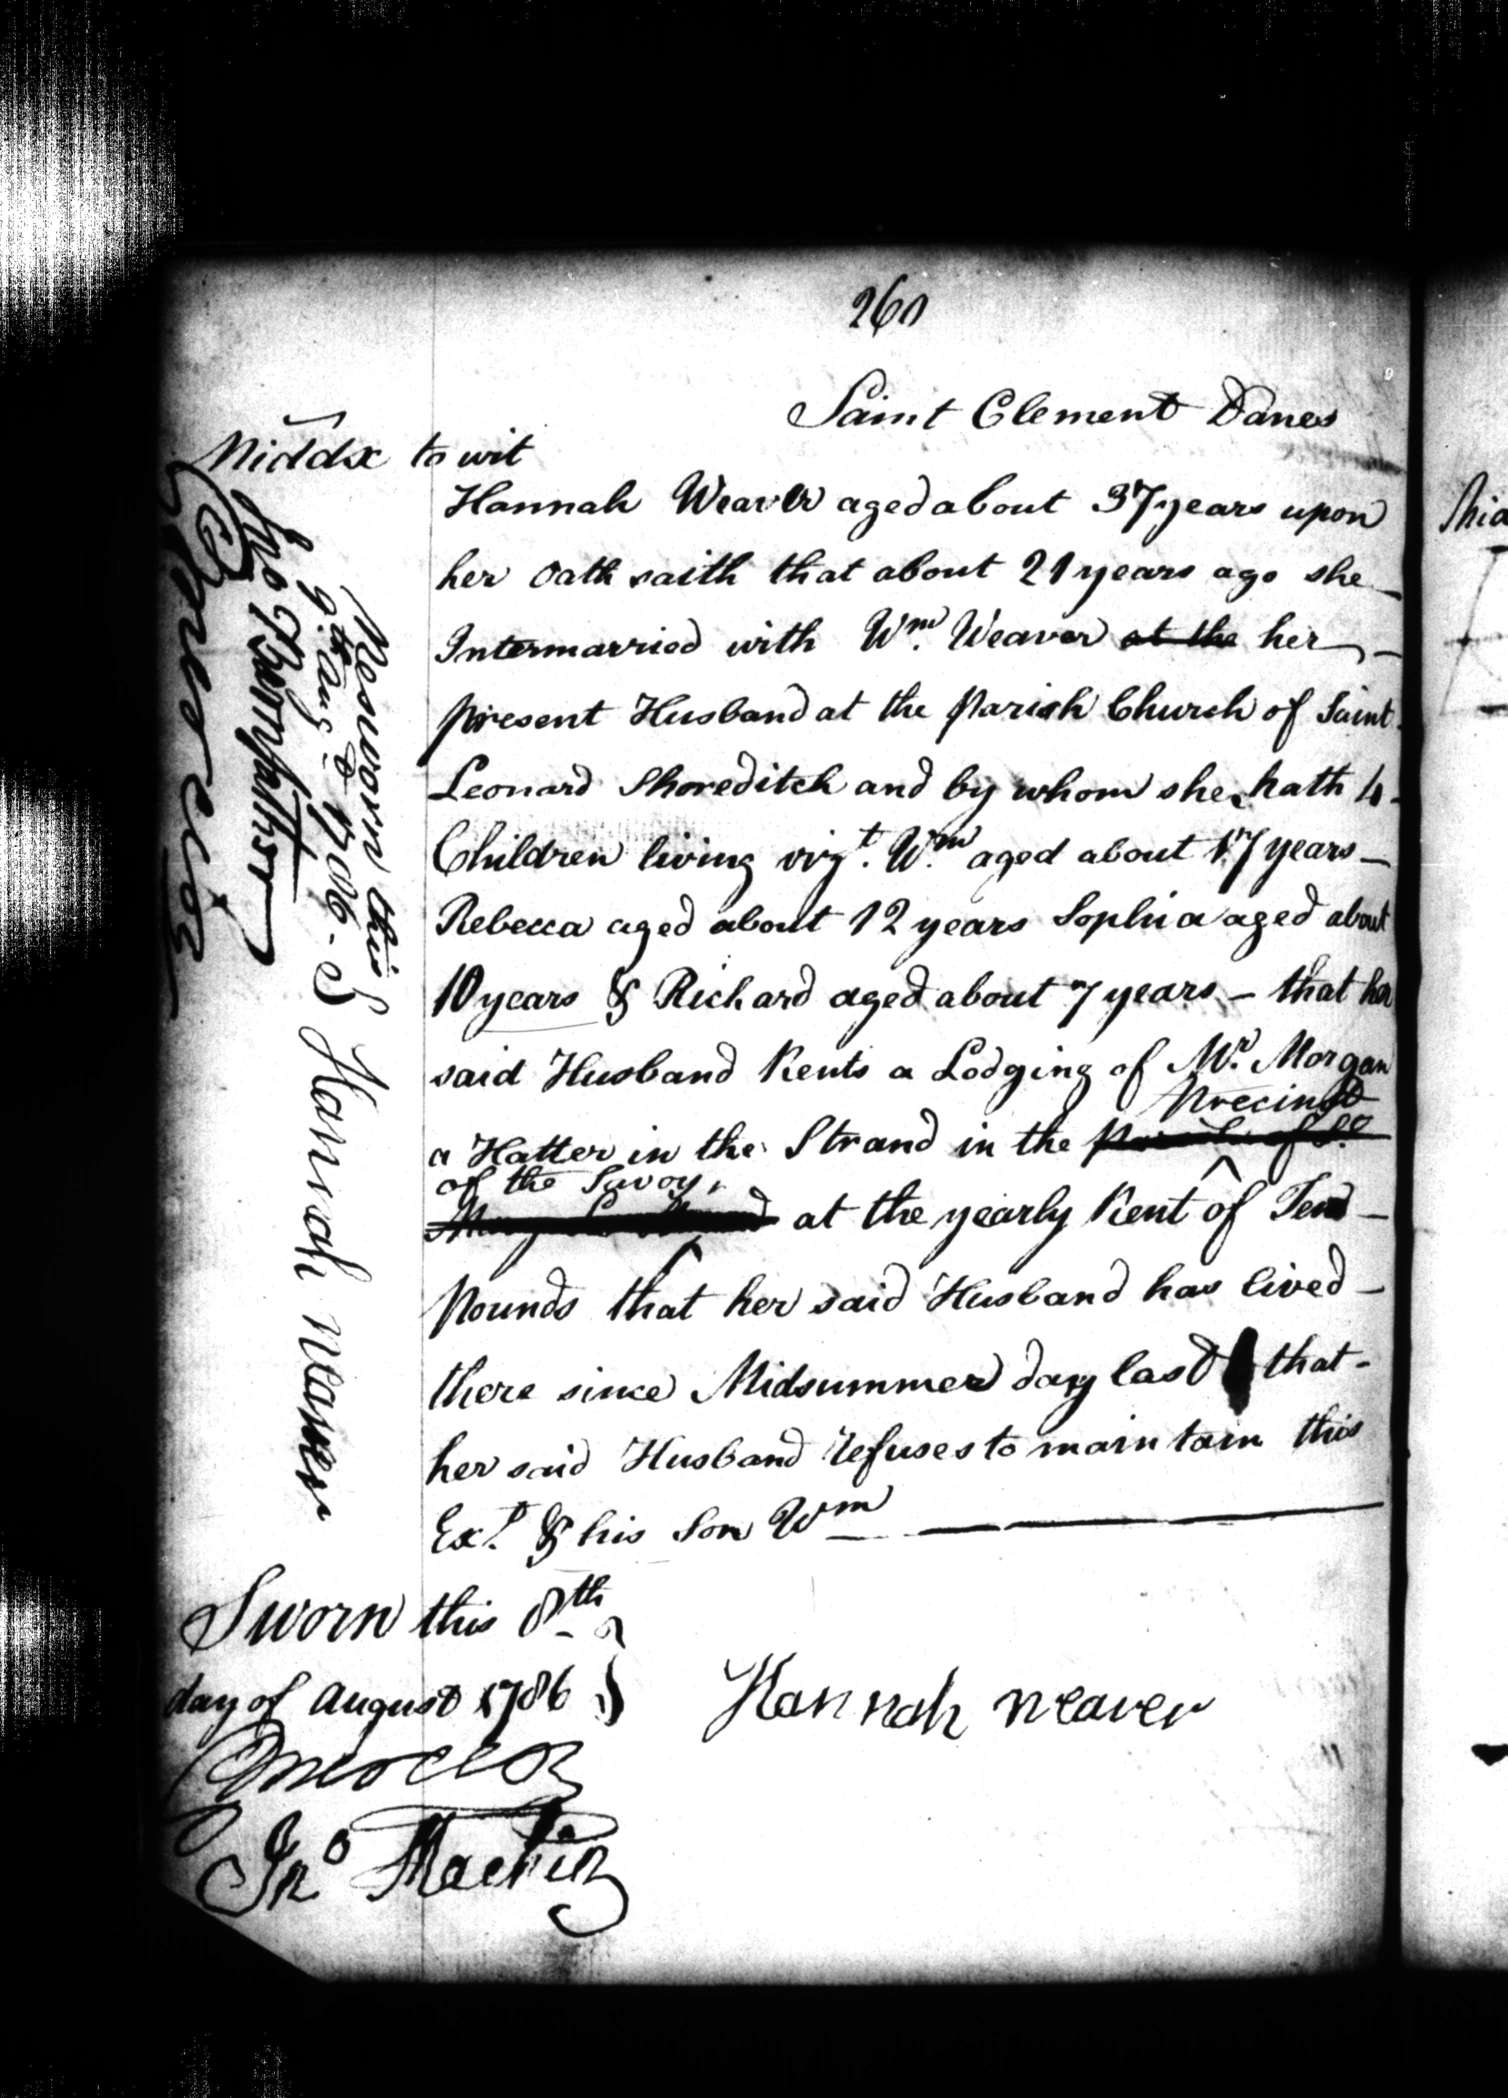 260
Saint Clement Danes
Middx to wit
Hannah Weaver aged about 37 years upon
her Oath saith that about 21 years ago she
Intermarried with Wm. Weaver at the her
present Husband at the Parish Church of Saint
Leonard Shoreditch and by whom she hath 4
Children living vizt. Wm aged about 17 years
Rebecca aged about 12 years Sophia aged about
10 years & Richard aged about 7 years - that her
said Husband Rents a Lodging of Mr. Morgan
Precinct
a Hatter in the Strand in the Parish of St.
of the Savoy
at the yearly Rent of Ten
Pounds that her said Husband has lived
there since Midsummer day last that
her said Husband refuses to maintain this
Ext. & his Son Wm
Sworn this 8th
day of August 1786
Hannah Weaver
Jno Machin
Resworn this
9th Augt 1786
Hannah Weaver
Jno